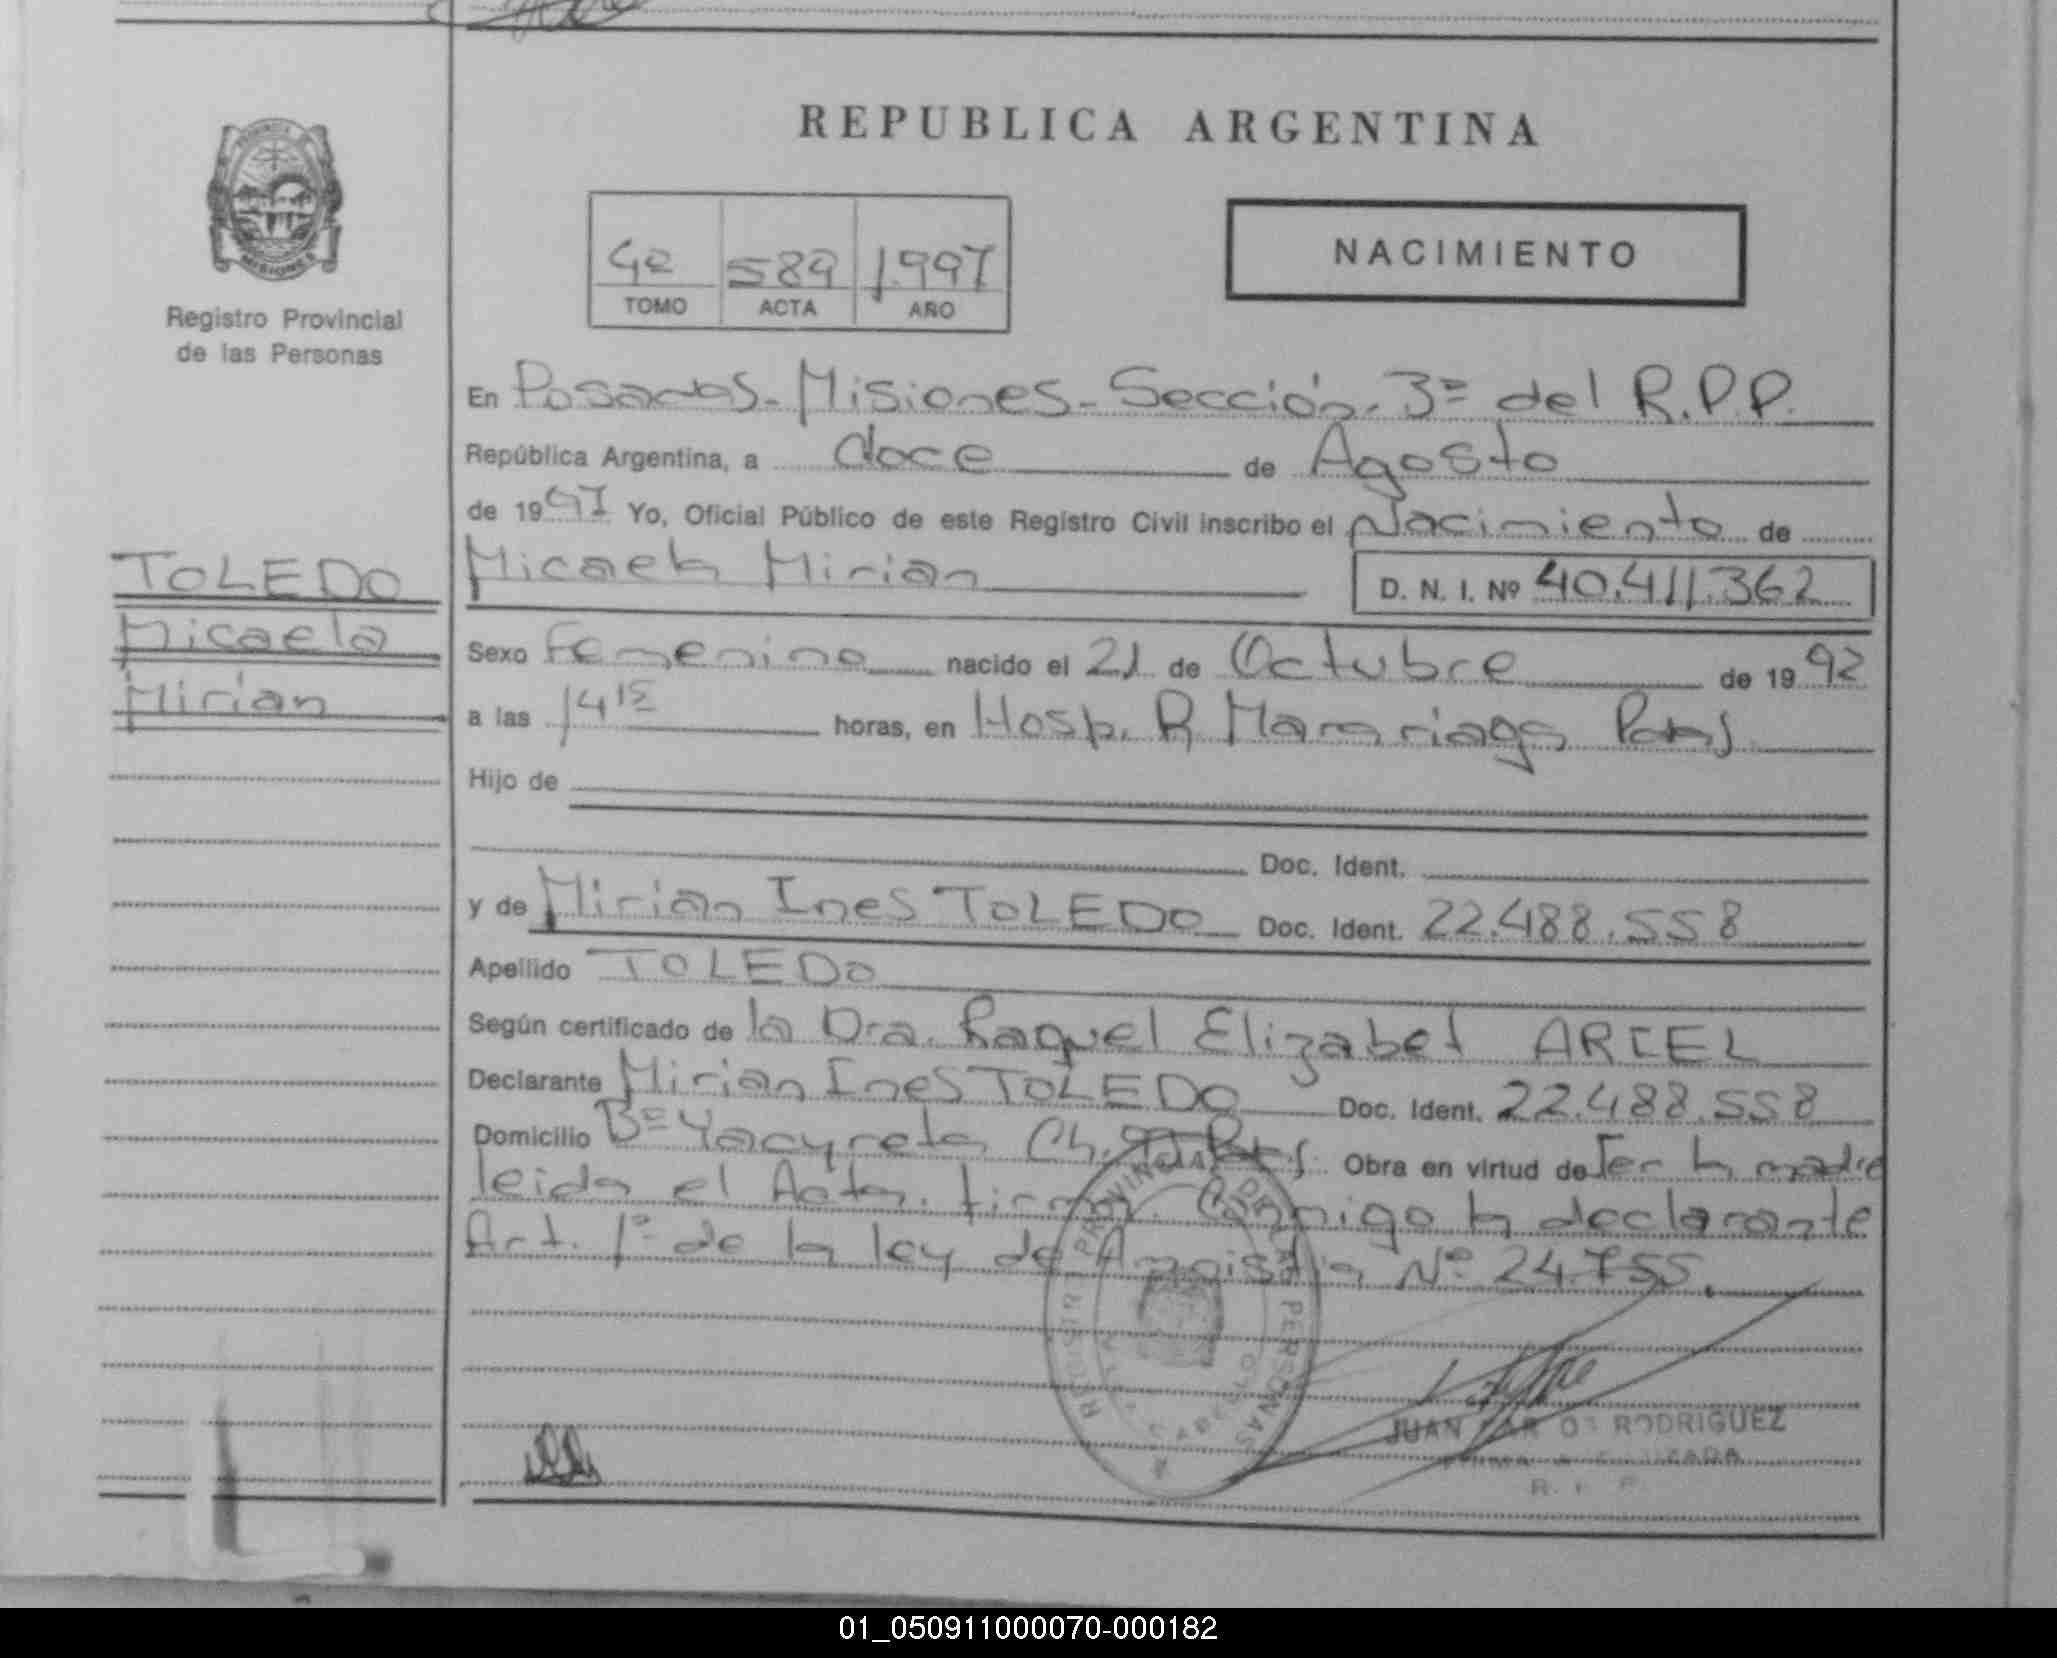 REPUBLICA ARGENTINA
PROVINCIA
MISIONES
Registro Provincial
de las Personas
4º 589 1.997
TOMO ACTA AÑO
NACIMIENTO
En Posadas - Misiones - Sección 3ª del R.P.P.
República Argentina, a doce de Agosto
de 1997 Yo, Oficial Público de este Registro Civil inscribo el Nacimiento de
TOLEDO
Micaela
Mirian
Micaela Mirian D. N. I. Nº 40.411.362
Sexo Femenino nacido el 21 de Octubre de 1992
a las 14 15 horas, en Hosp. R Madariaga Pdas
Hijo de
Doc. Ident.
y de Mirian Ines TOLEDO Doc. Ident. 22.488.558
Apellido TOLEDO
Según certificado de la Dra. Raquel Elizabet
Declarante Mirian Ines TOLEDO Doc. Ident. 22.488.558
Domicilio Bº Yacyreta Ch. Obra en virtud de Ser la madre
leida el Acta. firma Conmigo la declarante
Art. 1º de la ley de Amnistia Nº 24.755.
JUAN CARLOS RODRIGUEZ
FIRMA AUTORIZADA
R. P. P.
01_050911000070-000182